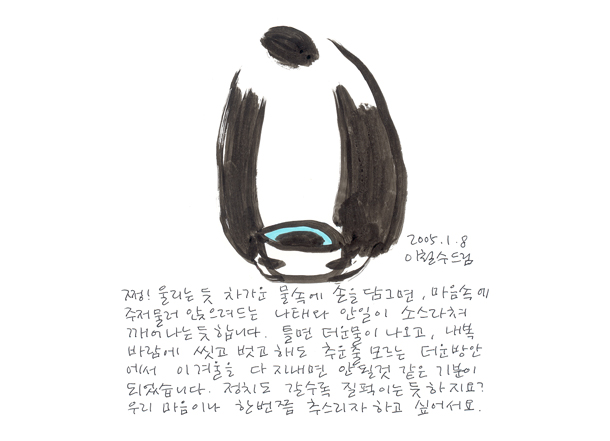 2005.1.8
이철수드림
쩡! 울리는 듯 차가운 물속에 손을 담그면, 마음속에
주저물러 앉으려드는 나태와 안일이 소스라쳐
깨어나는듯 합니다. 틀면 더운물이 나오고, 내복
바람에 씻고 벗고 해도 추운줄 모르는 더운방안
에서 이겨울을 다 지내면 안 될것 같은 기분이
되었습니다. 정치도 갈수록 질퍽이는 듯 하지요?
우리 마음이나 한번쯤 추스리자 하고 싶어서요.